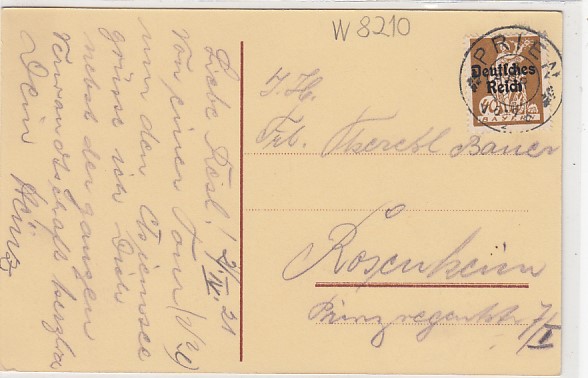 W 8210
PRIEN
Deutsches
Reich
BAYERN
Liebe Resl! 2/IV. 21
Von einer Tour
um den Chiemsee
grüsse ich Dich
nebst der ganzen
Verwandtschaft herzlich
Dein Heinz
Frl. Theresl Bauer
Rosenheim
Prinzregentstr 7/I